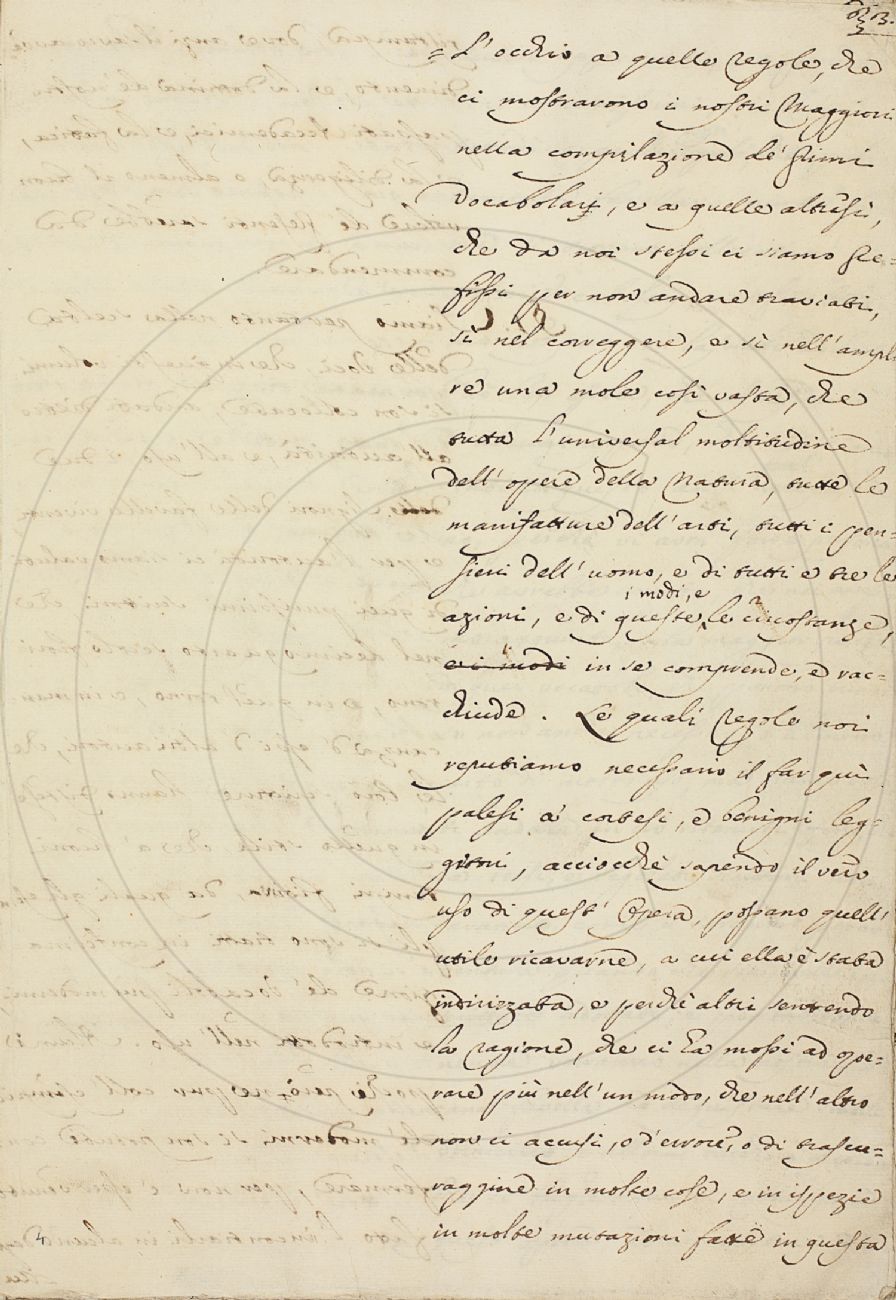 = L'occhio a quelle regole, che
ci mostravono i nostri Maggiori
nella compilazione de' primi
Vocabolarj, e a quelle altresì,
che da noi stessi ci siamo pre=
fissi per non andare traviati,
sì nel correggere, e sì nell'ampl
re una mole così vasta, che
tutta l'universal moltitudine
dell'opere della Natura, tutte le
manifatture dell'arti, tutti i pen=
sieri dell'uomo, e di tutti e tre le
i modi, e
azioni, e di queste le circostanze,
e i modi in se comprende, e rac=
chiude. Le quali regole noi
reputiamo necessario il far quì
palesi a' cortesi, e benigni leg=
gitori, acciocchè sapendo il vero
uso di quest' Opera, possano quell'
utile ricavarne, a cui ella è stata
indirizzata, e perchè altri sentendo
la ragione, che ci ha mossi ad ope=
rare più nell'un modo, che nell'altro
non ci accusi, o d'errore, o di trascu=
raggine in molte cose, e in ispezie
in molte mutazioni fatte in questa